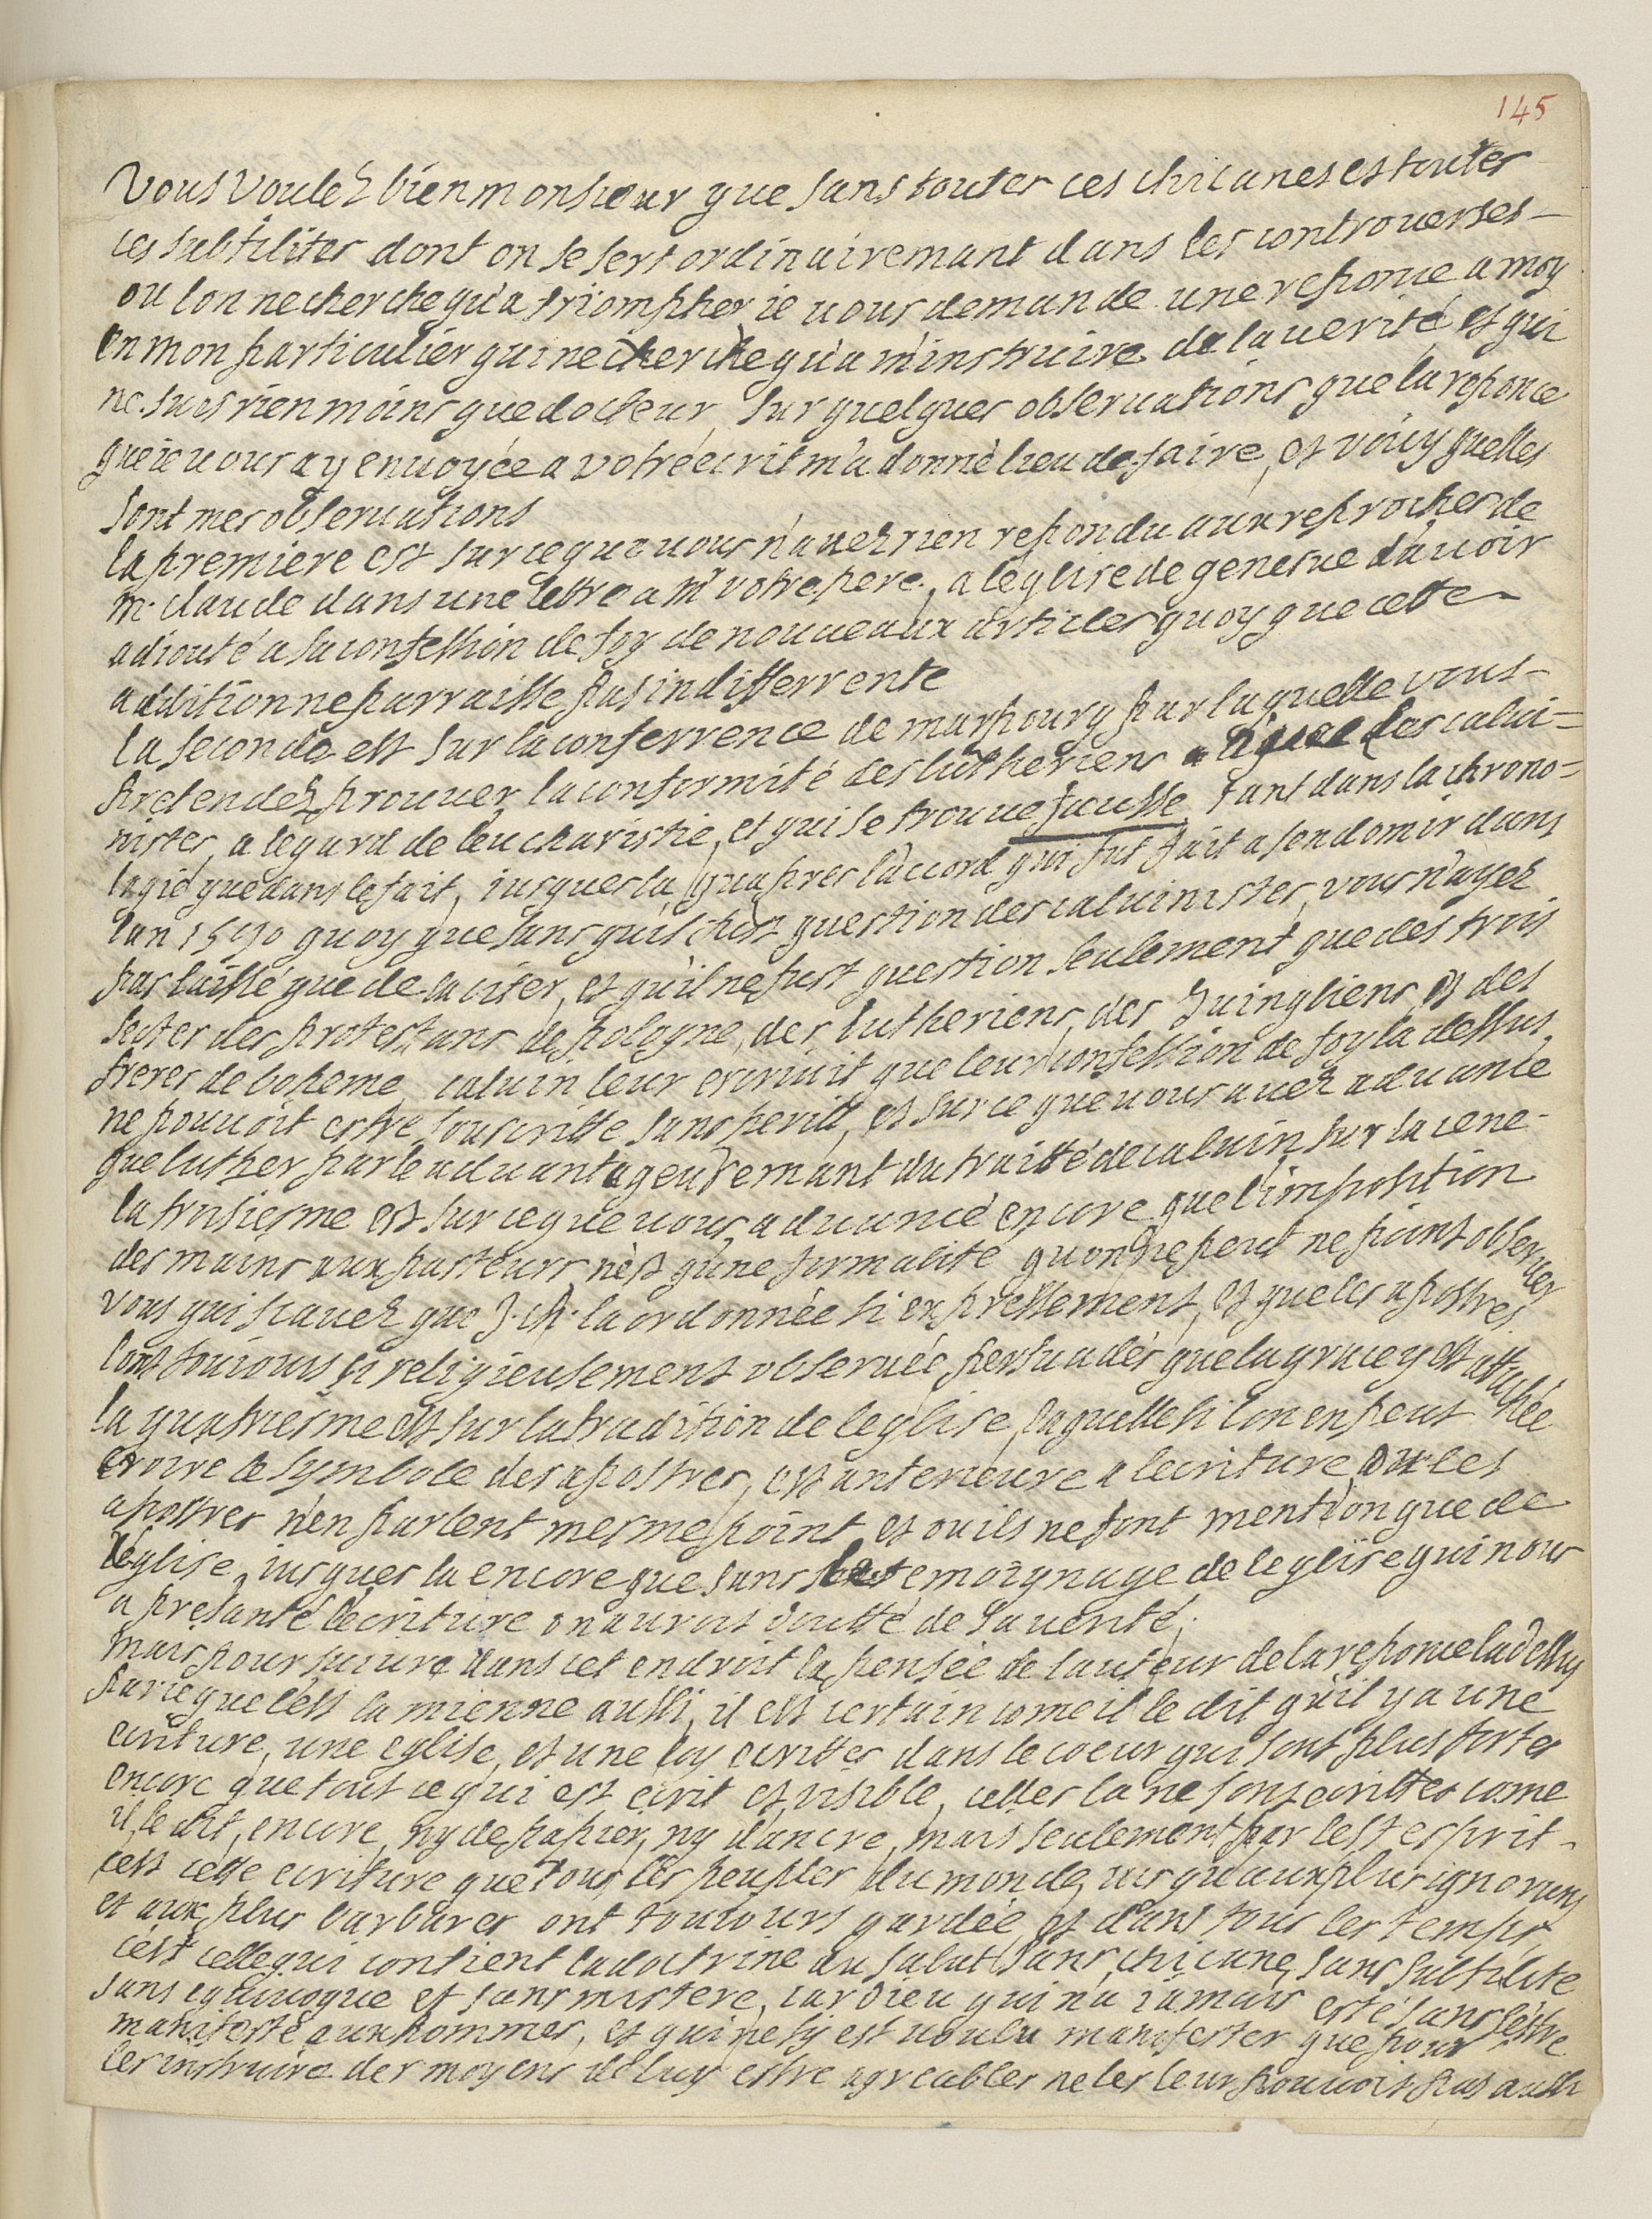 145
Vous voulez bien monsieur que sans toutes ces chicanes et toutes
ces subtilites dont on se sert ordinairemant dans les controuerses
ou lon ne cherche qu'a triompher ie vous demande une reponce a moy
en mon particulier qui ne cherche qu'a m'instruire de la verité, et qui
ne suis rien moins que docteur, sur quelques observations que la reponce
que ie vous ay envoyée a votre écrit m'a donné lieu de faire, et voicy quelles
sont mes observations
la premiere est sur ce que vous n'auez rien repondu aux reproches de
mr. claude dans une lettre a mr votre pere, a leglise de geneue d'auoir
adiouté a sa confession de foy de nouueaux articles quoy que cette
addition ne parraisse pas indifferrente
la seconde est sur la conferrence de marpourg par laquelle vous
pretendez prouuer la conformité des lutheriens a les calui=
nistes, a legard de leucharistie, et qui se trouue fausse, tant dans la chrono=
logie que dans le fait, iusques la, qu'apres l'accord qui fut fait a sendomir dans
lan 1570 quoy que sans qu'il fust question des caluinistes, vous n'ayez
pas laissé que de la citer, et qu'il ne fust question seulement que des trois
sectes des protestans de pologne, des lutheriens, des Zuingliens, et des
freres de boheme, caluin leur escriuit que leur confession de foy la dessus
ne pouuoit estre souscritte sans perill, et sur ce que vous auez aduancé
que luther parle aduantageusemant du traitté de caluin sur la cene
la troisiesme est sur ce que vous aduancé encore que l'imposition
des mains aux pasteurs n'est qu'une formalité qu'on ne peut ne point obseruer
vous qui scauez que J. ch. la ordonnée si expressement, et que les apostres
lont touiours si religieusement obseruée, persuadés que la grace y est attachée
la quatriesme est sur la tradition de leglise, laquelle si lon en peut
croire le symbole des apostres, est anterieure a lecriture, dont les
apostres n'en parlent mesme point, et ou ils ne font mention que de
l'église, iusques la encore que sans le temoignage de leglise qui nous
a presanté lecriture on auroit doutté de sa verité;
mais pour suiure dans cet endroit la pensée de lauteur de la reponce la dessus
parce que c'est la mienne aussi, il est certain come il le dit qu'il y a une
ecriture, une eglise, et une loy ecrittes dans le coeur qui sont plus fortes
encore que tout ce qui est ecrit et visible, celles la ne sont ecrittes come
il le dit, encore, ny de papier, ny d'ancre, mais seulement par le st esprit
c'est cette ecriture que tous les peuples du monde, iusqu'aux plus ignorans
et aux plus barbares ont touiours gardée, et dans tous les temps,
c'est celle qui contient la doctrine du salut, sans chicane, sans subtilité
sans equiuoque et sans mistere, car Dieu qui n'a iamais esté sans s'estre
manifesté aux hommes, et qui ne s'y est voulu manifester que pour
les instruire des moyens de luy estre agreables ne les leur pouuoit pas aussi